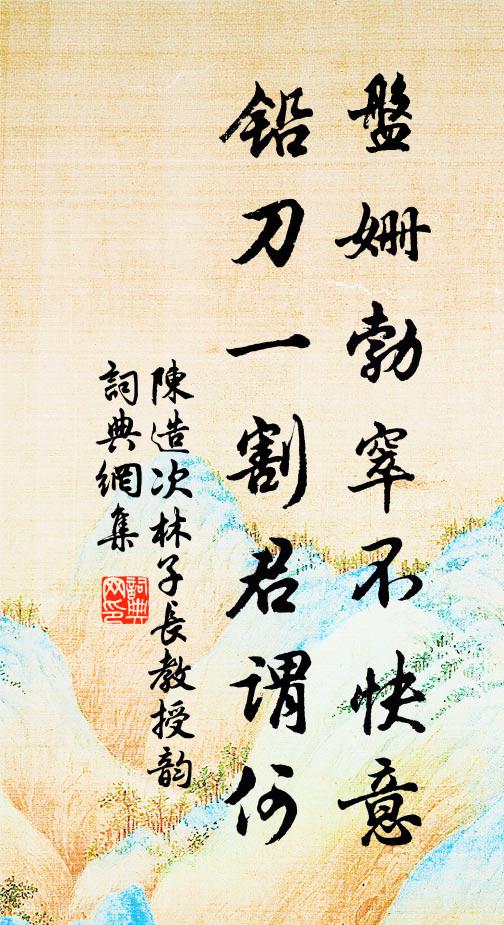 盤姍勃窣不快意
鉛刀一割君謂何
陳造次林子長教授韵
詞典網集
詞典网印